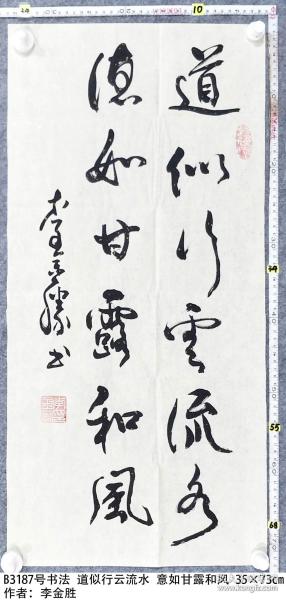 道似行雲流水
德如甘露和風
李金勝书
B3187号书法 道似行云流水 意如甘露和风 35×73cm
作者: 李金胜